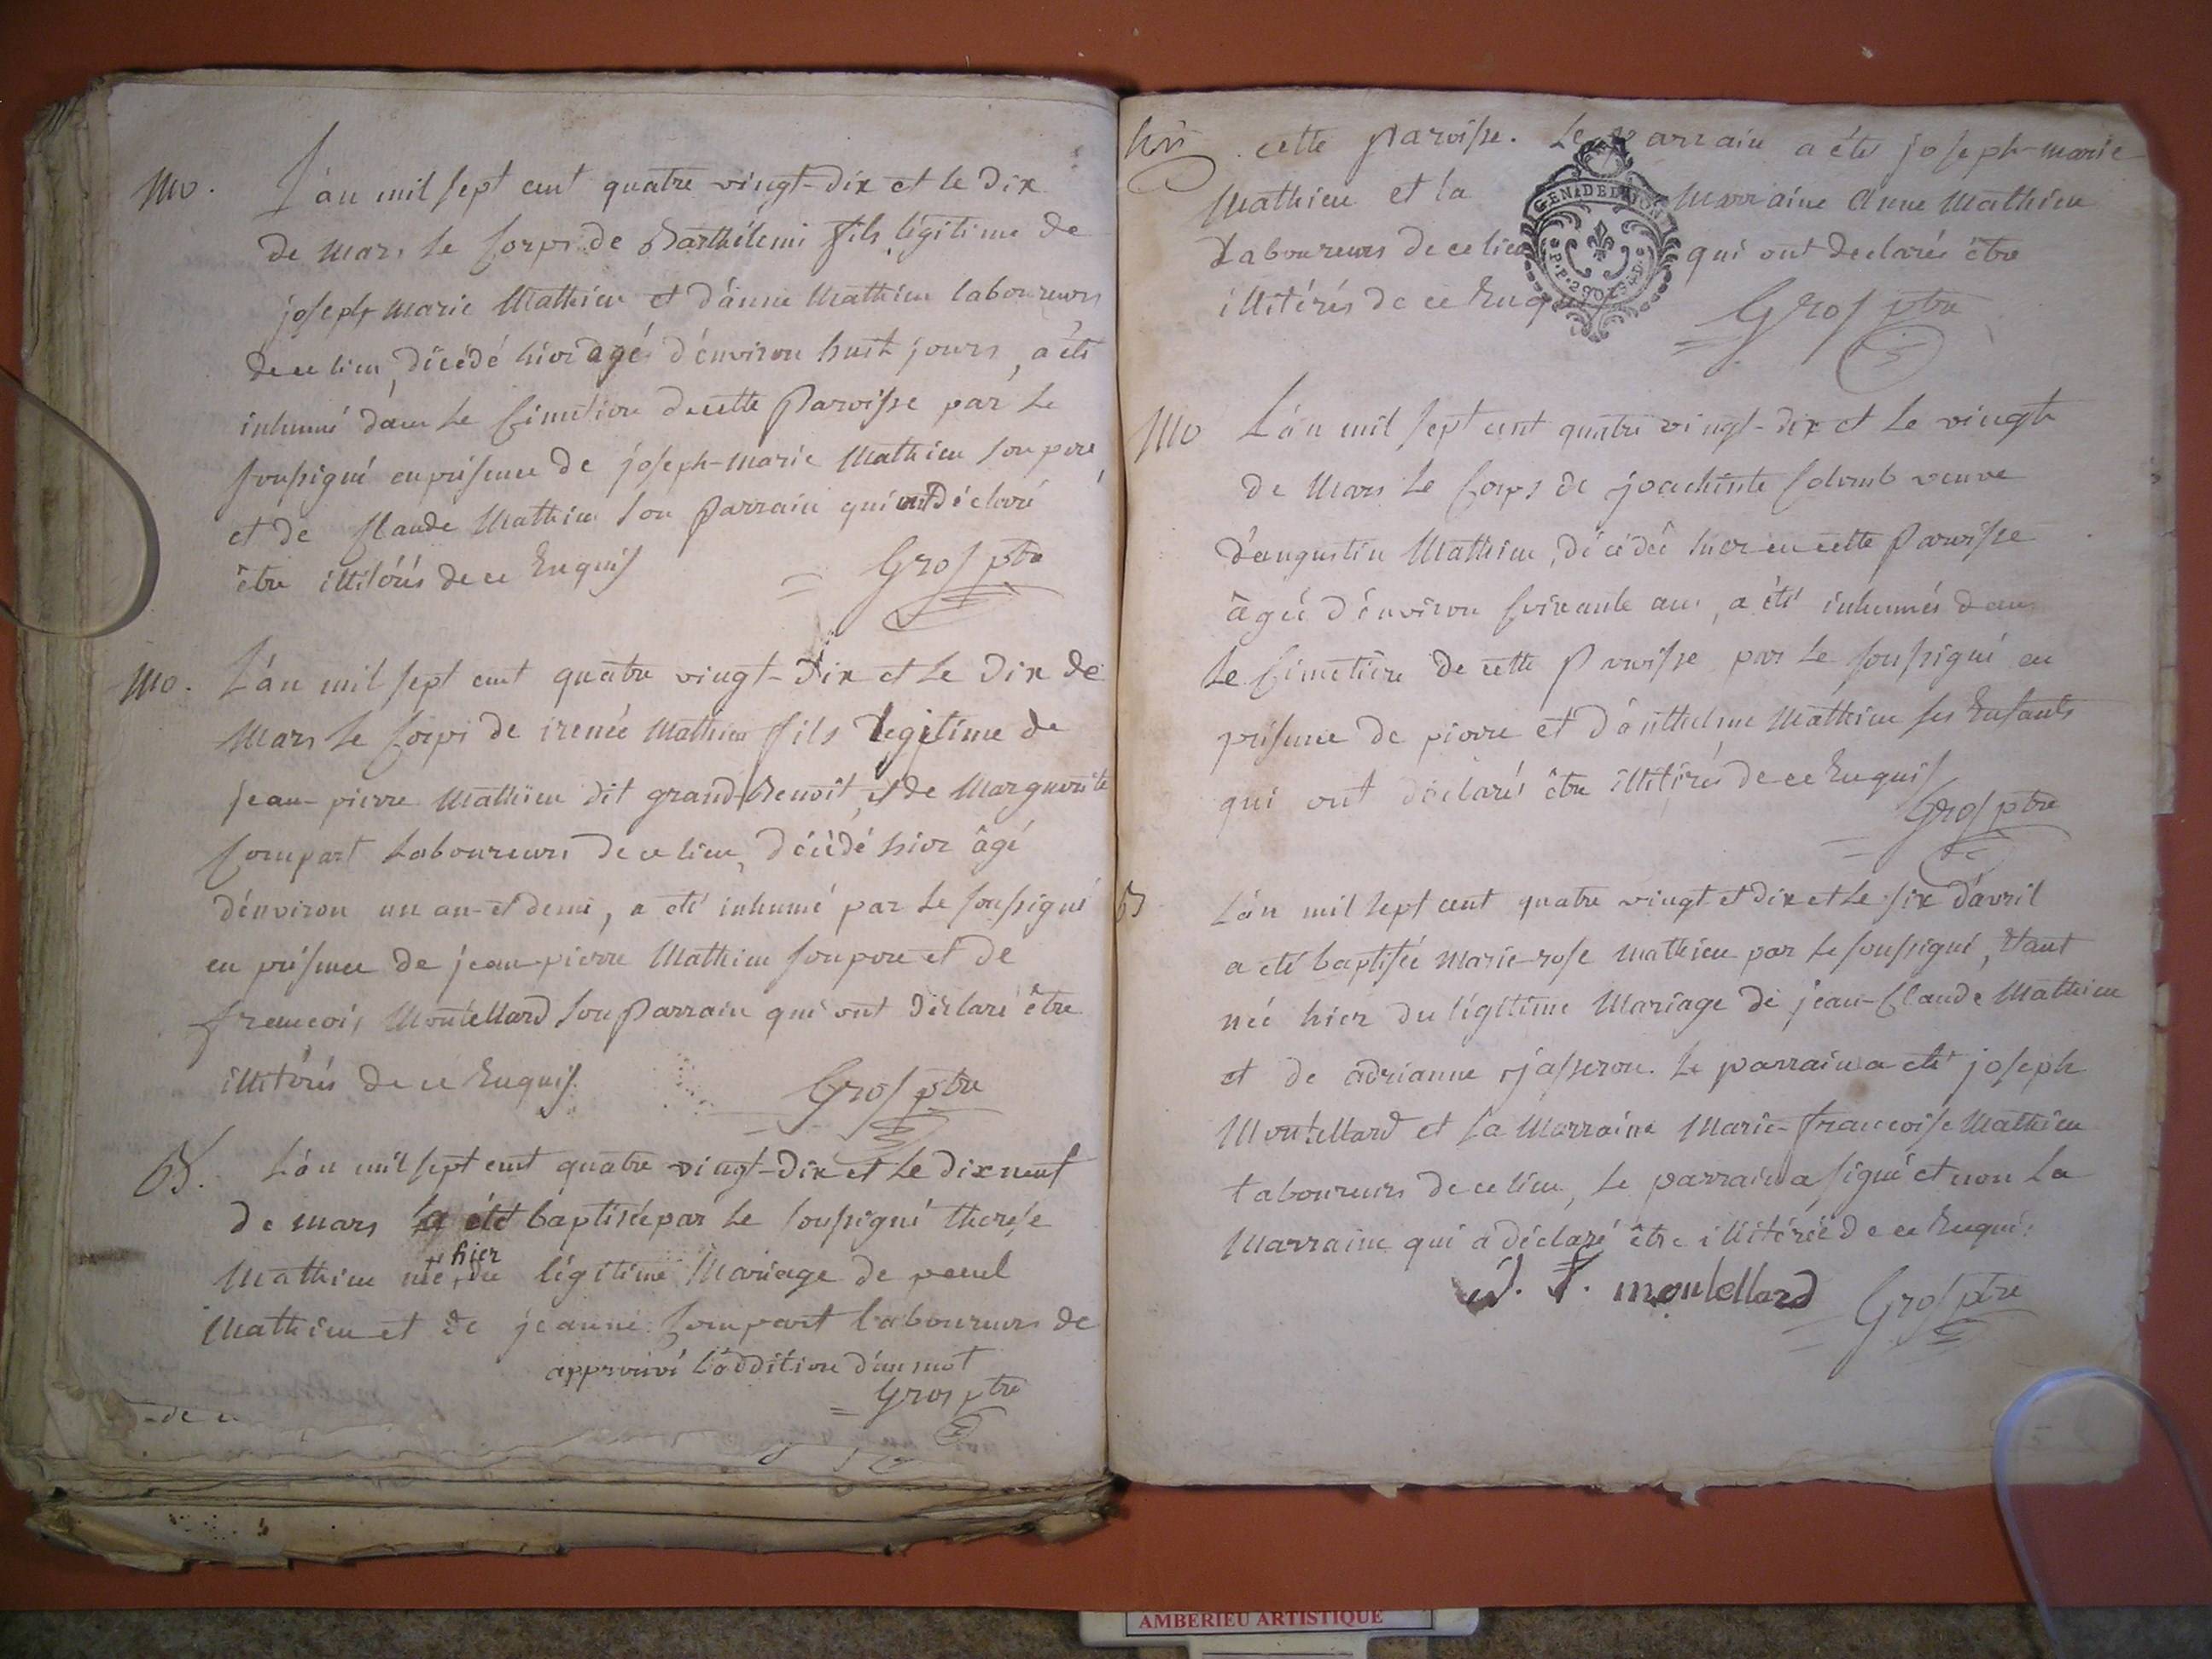 mo. L'an mil sept cent quatre vingt-dix et le dix
de mars le Corps de Barthélemi fils légitime de
joseph-marie Mathieu et d'anne Mathieu laboureurs
de ce lieu, décédé hier agé d'environ huit jours, a été
inhumé dans le Cimetiere de cette Paroisse par le
soussigné en présence de joseph-marie Mathieu son pere,
et de Claude Mathieu son Parrain qui ont déclaré
être illitérés de ce Enquis
Gros ptre
mo. L'an mil sept cent quatre vingt-dix et le dix de
Mars le Corps de irenée Mathieu fils legitime de
jean-pierre Mathieu dit grand Benoit, et de Marguerite
Compart Laboureurs de ce lieu, décédé hier âgé
d'environ un an et demi, a été inhumé par le soussigné
en présence de jean-pierre Mathieu son pere et de
françois Montellard son Parrain qui ont déclaré être
illitérés de ce Enquis.
Gros ptre
B. L'an mil sept cent quatre vingt-dix et le dix neuf
de mars a été baptisée par le soussigné therese
hier
Mathieu née du légitime Mariage de paul
Mathieu et de jeanne Compart laboureurs de
approuvé l'addition d'un mot
Gros ptre
de
cette Paroisse. Le Parrain a été joseph-marie
Mathieu et la Marraine Anne Mathieu
GEN. DE DIJON
Laboureurs de ce lieu qui ont declarés être
illitérés de ce Enquis
Gros ptre
mo L'an mil sept cent quatre vingt-dix et le vingt
de Mars le Corps de joachinte Colomb veuve
d'augustin Mathieu, décédée hier en cette Paroisse
âgée d'environ soixante ans, a été inhumée dans
le Cimetière de cette Paroisse par le soussigné en
présence de pierre et d'anthelme Mathieu ses Enfants
qui ont déclarés être illitérés de ce Enquis
Gros ptre
B L'an mil sept cent quatre vingt et dix et le six d'avril
a été baptisée marie-rose mathieu par le soussigné, étant
née hier du légitime Mariage de jean-Claude Mathieu
et de adrianne jasseron. Le parrain a été joseph
Montellard et la Marraine Marie-françoise Mathieu
Laboureurs de ce lieu, le parrain a signé et non la
Marraine qui a déclaré être illitérée de ce Enquis.
montellard Gros ptre
AMBERIEU ARTISTIQUE